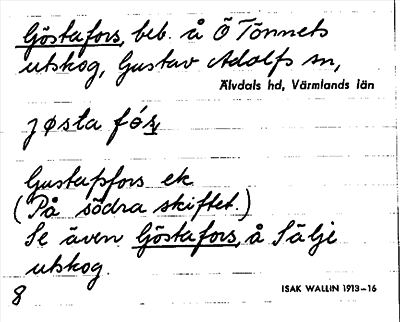 Göstafors, beb. å Ö Tönnets
utskog, Gustav Adolfs sn,
Älvdals hd, Värmlands län
jøsta fós,
Gustafsfors ek
(På södra skiftet.)
Se även Göstafors, å Sälje
utskog.
8
ISAK WALLIN 1913–16